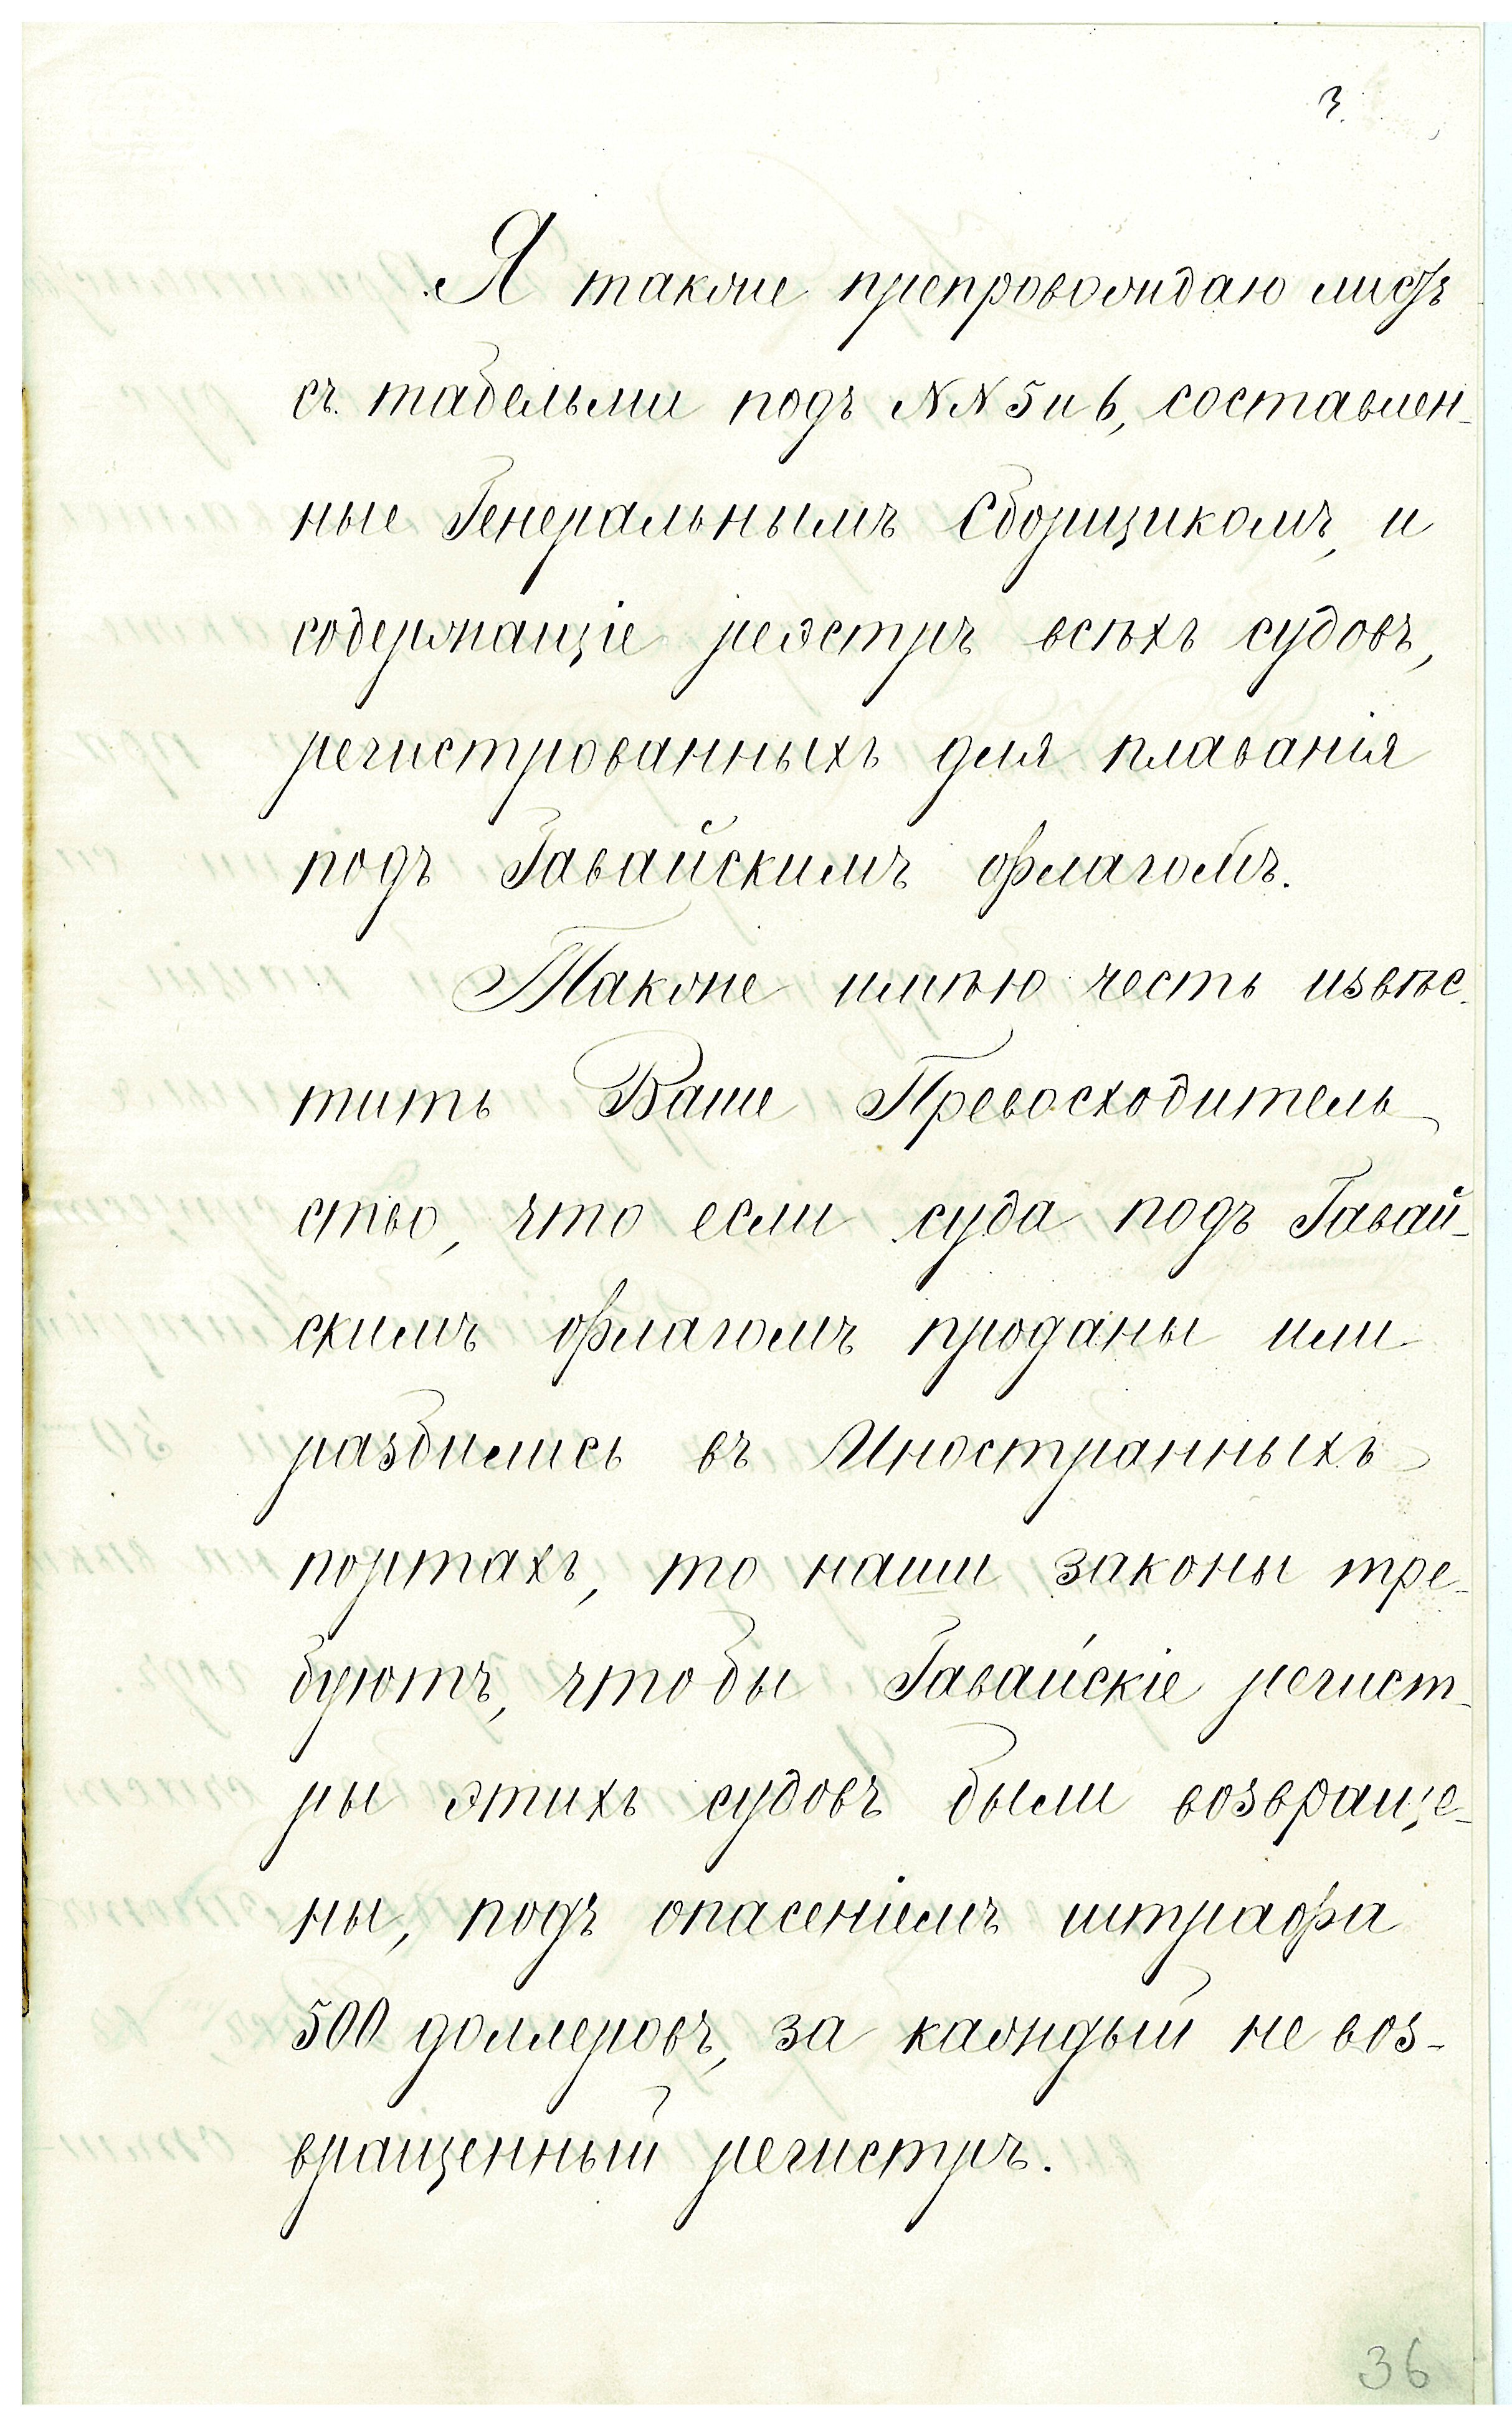 3.
Я также препровождаю листъ
съ табельми подъ NN 5 и 6, составлен-
ные Генеральнымъ Сборщикомъ, и
содержащіе реэстръ всѣхъ судовъ,
регистрованныхъ для плаванія
подъ Гавайскимъ флагомъ.
Также имѣю честь извѣс-
тить Ваше Превосходитель-
ство, что если суда подъ Гавай-
скимъ флагомъ проданы или
разбились въ Иностранныхъ
портахъ, то наши законы тре-
буютъ, чтобы Гавайскіе регист-
ры этихъ судовъ были возвраще-
ны, подъ опасеніемъ штрафа
500 доллеровъ, за каждый не воз-
вращенный регистръ.
36